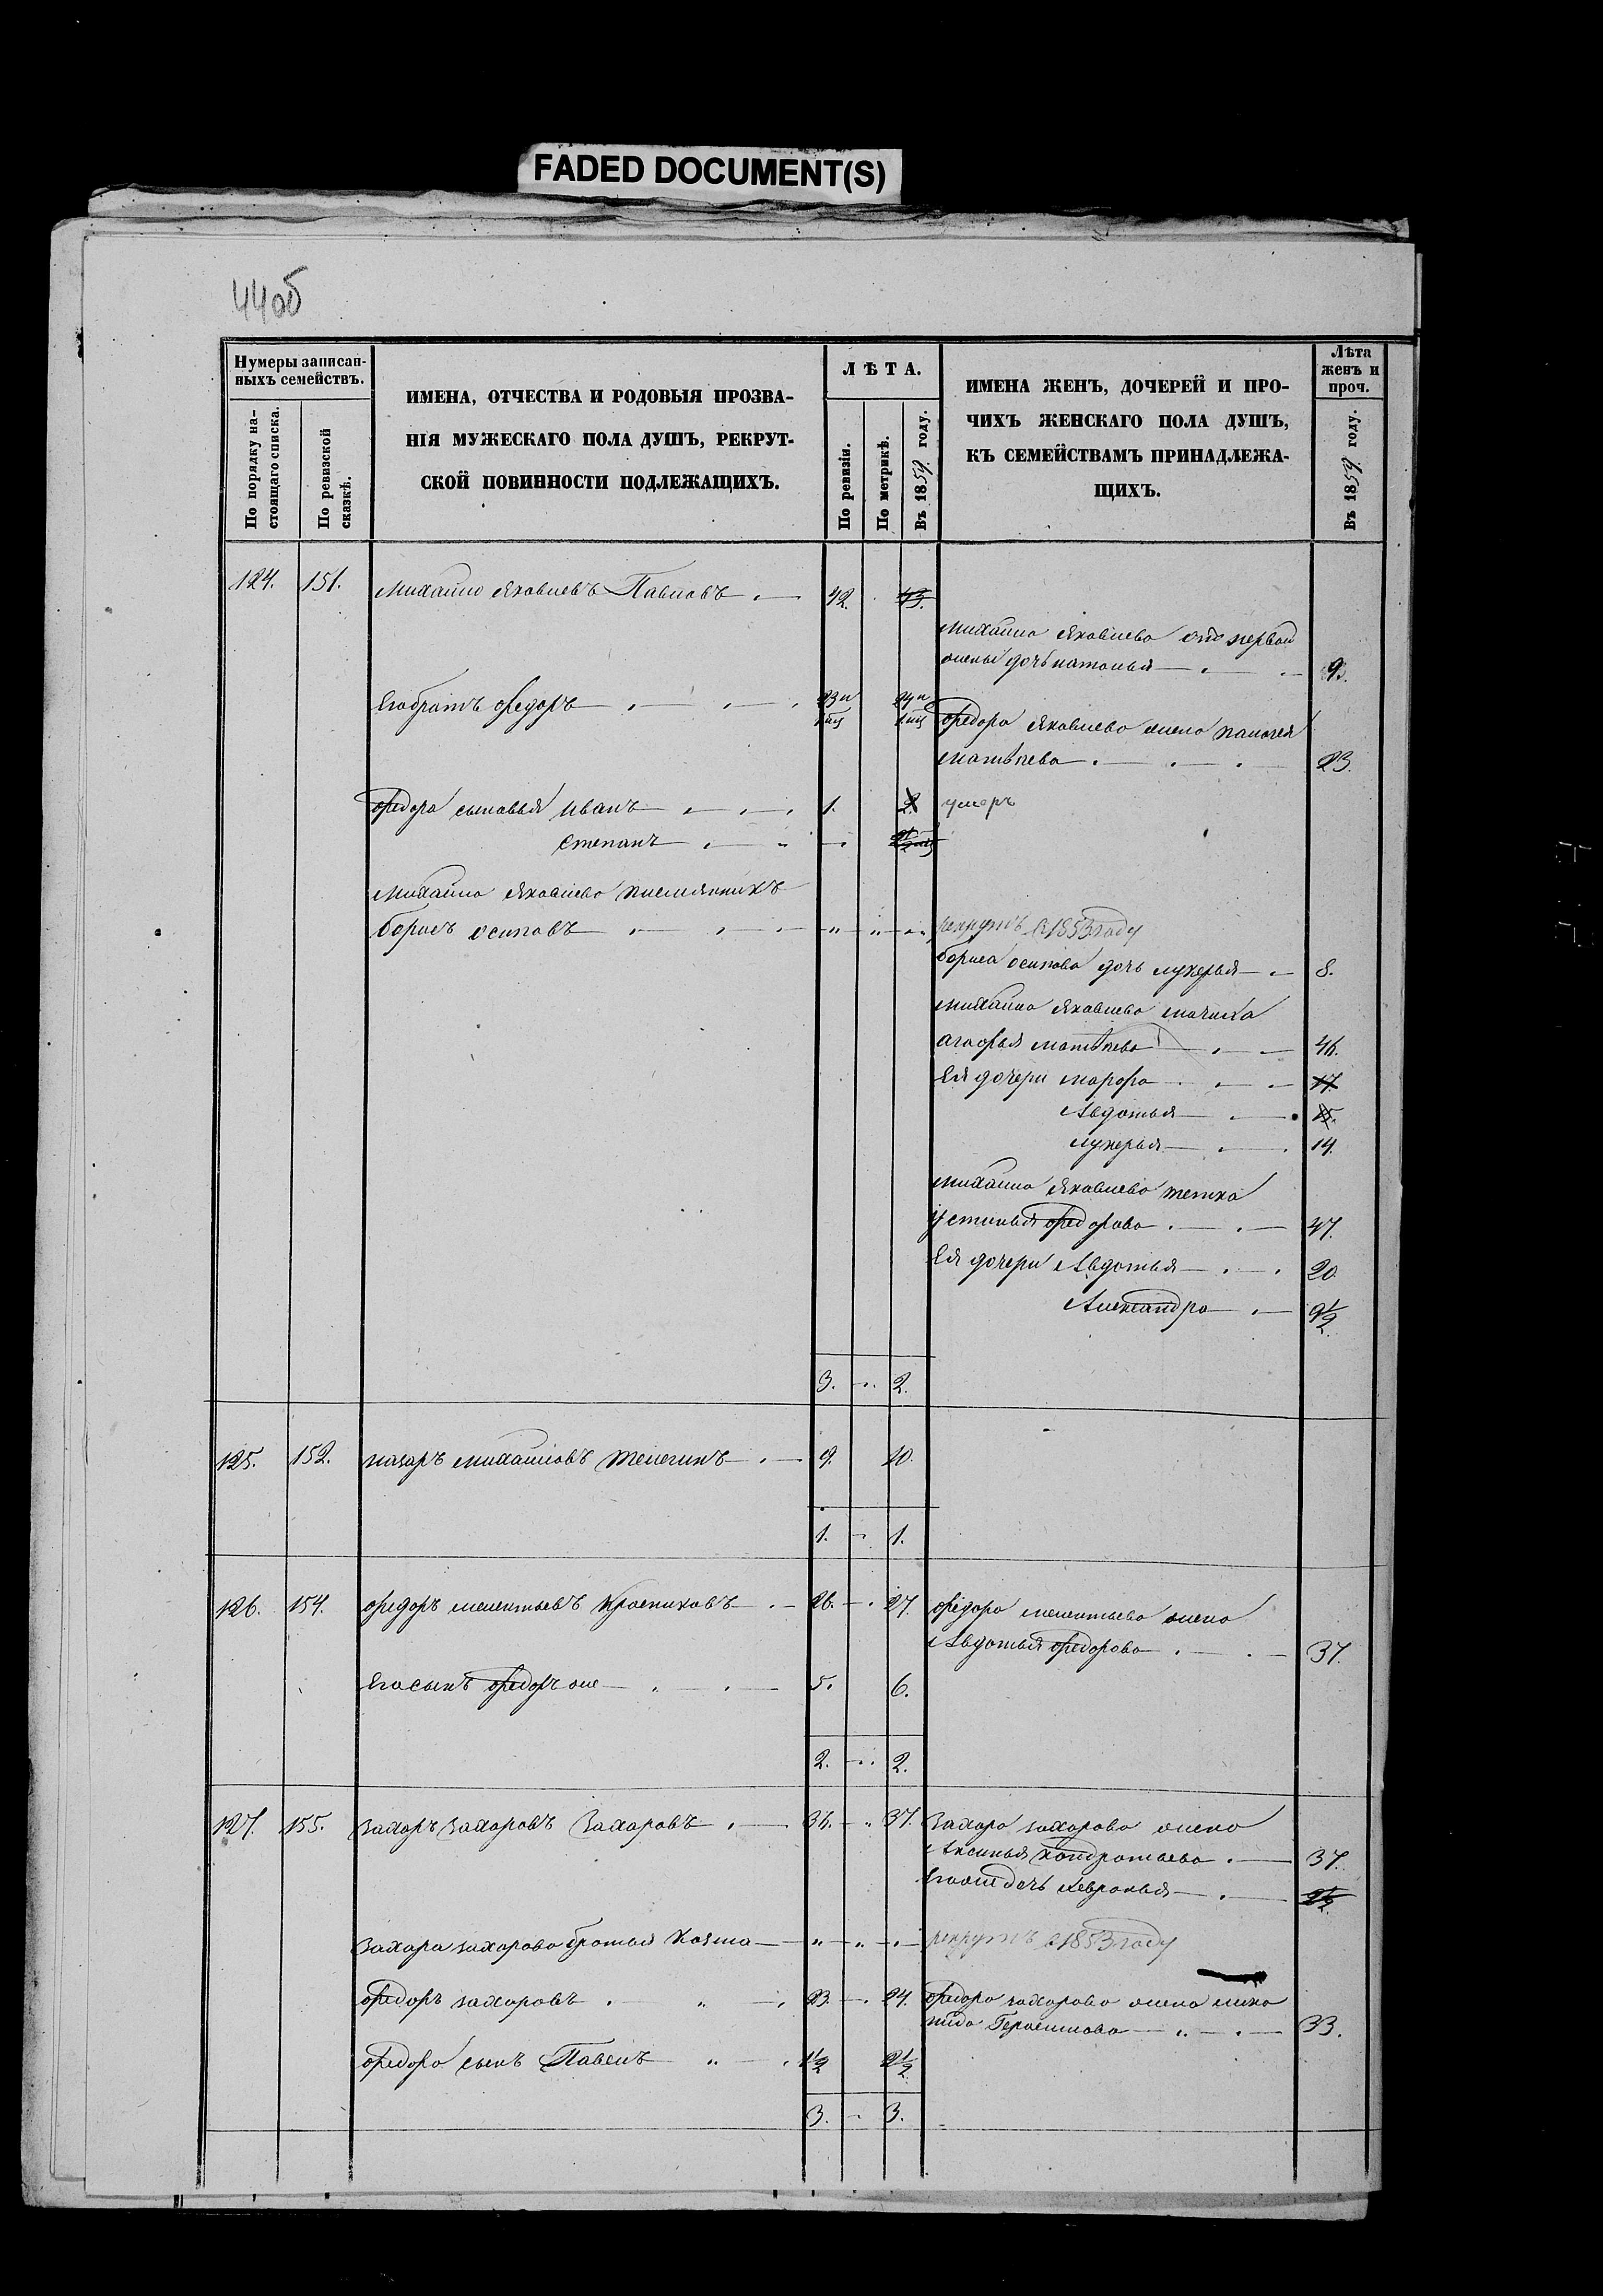 FADED DOCUMENT(S)
44об
Нумеры записан-
ныхъ семействъ.
По порядку на-
стоящаго списка.
По ревизской
сказкѣ.
ИМЕНА, ОТЧЕСТВА И РОДОВЫЯ ПРОЗВА-
НІЯ МУЖЕСКАГО ПОЛА ДУШЪ, РЕКРУТ-
СКОЙ ПОВИННОСТИ ПОДЛЕЖАЩИХЪ.
ЛѢТА.
По ревизіи.
По метрикѣ.
Въ 1859. году.
ИМЕНА ЖЕНЪ, ДОЧЕРЕЙ И ПРО-
ЧИХЪ ЖЕНСКАГО ПОЛА ДУШЪ,
КЪ СЕМЕЙСТВАМЪ ПРИНАДЛЕЖА-
ЩИХЪ.
Лѣта
женъ и
проч.
Въ 1859. году.
124. 151. Михайло Яковлевъ Павловъ 42. 43.
Михайла Яковлева отъ первой
жены дочь наталья 9.
Егобратъ федоръ 23 и 24 и
федора Яковлева жена пелагея
матвѣева 23.
федора сыновья иванъ 1. 2 умеръ
степанъ
Михайла Яковлева племянникъ
борисъ осиповъ рекрутъ в 1853 году
бориса осипова дочь лукерья 8.
михайла Яковлева мачиха
агафья матвѣева 46.
Ея дочери марфа 17.
Авдотья 15.
лукерья 14.
михайла Яковлева тетка
устинья федорова 47.
Ея дочери Авдотья 20.
Александра 9½
3. 2.
125. 152. назаръ михайловъ телегинъ 9. 10.
1. 1.
126. 154. федоръ мелентьевъ красниковъ 26. 27. федора мелентьева жена
Авдотья федорова 37.
Егосынъ федоръ же 5. 6.
2. 2.
127. 155. захаръ захаровъ захаровъ 36. 37. захара захарова жена
Аксинья кондратьева 37.
дочь февронья 2½
захара захарова братья козма рекрутъ в 1853 году
федоръ захаровъ 23. 24. федора захарова жена
Герасимова 33.
федора сынъ Павелъ 1½ 2½
3. 3.